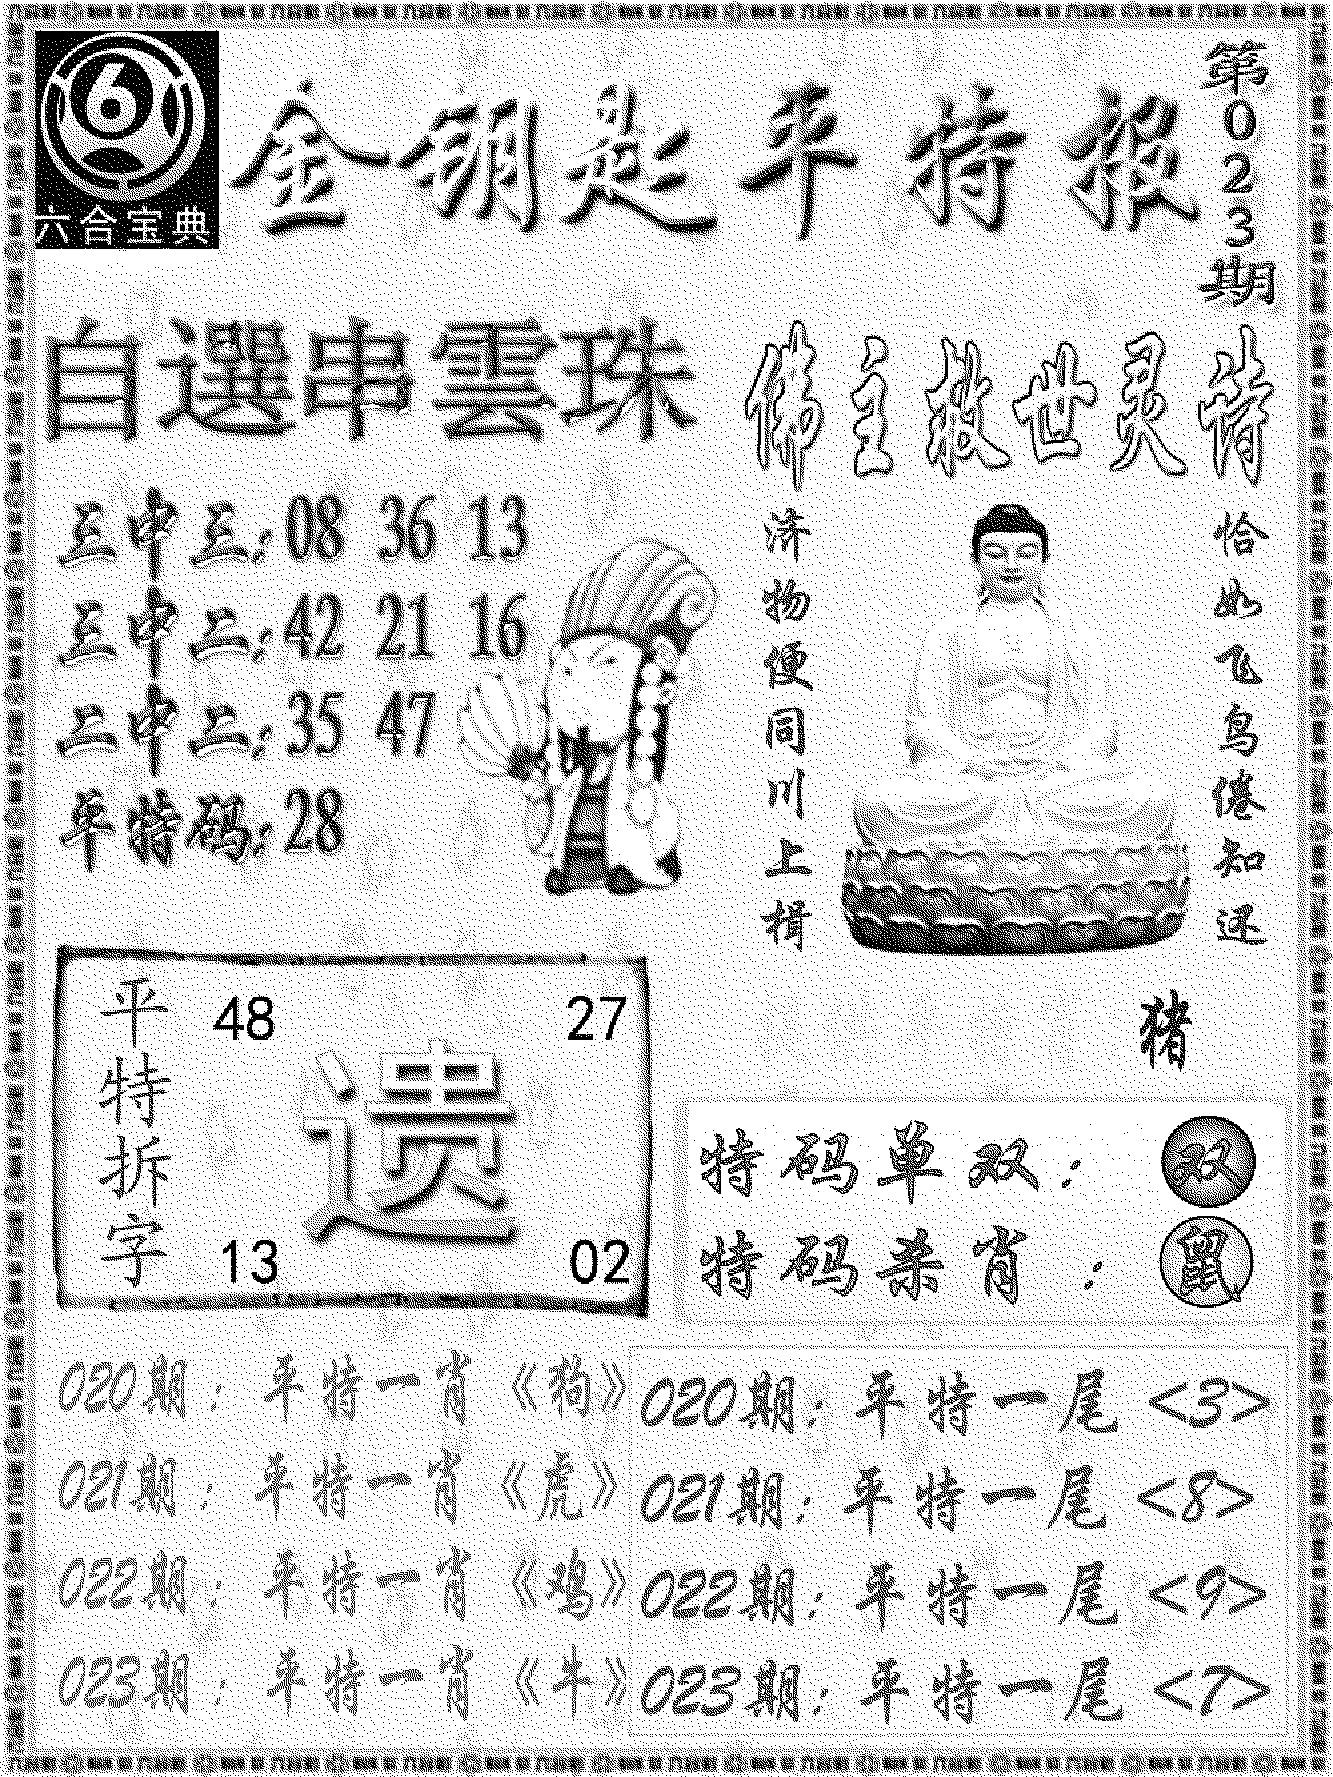 六合宝典
金钥匙平特报
第023期
自選串雲珠
三中三:08 36 13
三中二:42 21 16
二中二:35 47
平特码:28
佛主救世灵诗
恰如飞鸟倦知还
济物便同川上揖
猪
平特拆字
48 27
遗
13 02
特码单双：双
特码杀肖：鼠
020期：平特一肖《狗》
021期：平特一肖《虎》
022期：平特一肖《鸡》
023期：平特一肖《牛》
020期：平特一尾<3>
021期：平特一尾<8>
022期：平特一尾<9>
023期：平特一尾<7>